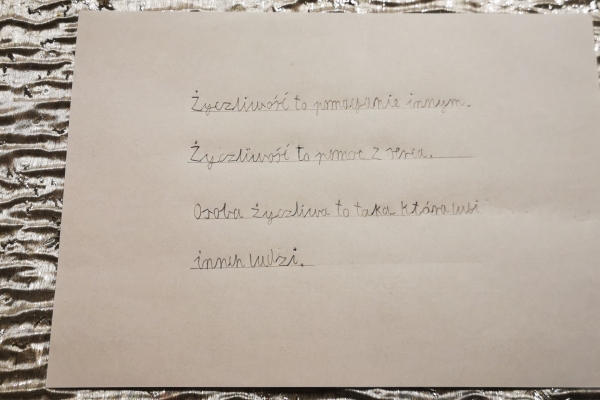 Życzliwość to pomaganie innym.
Życzliwość to pomoc z serca.
Osoba życzliwa to taka która lubi
innych ludzi.